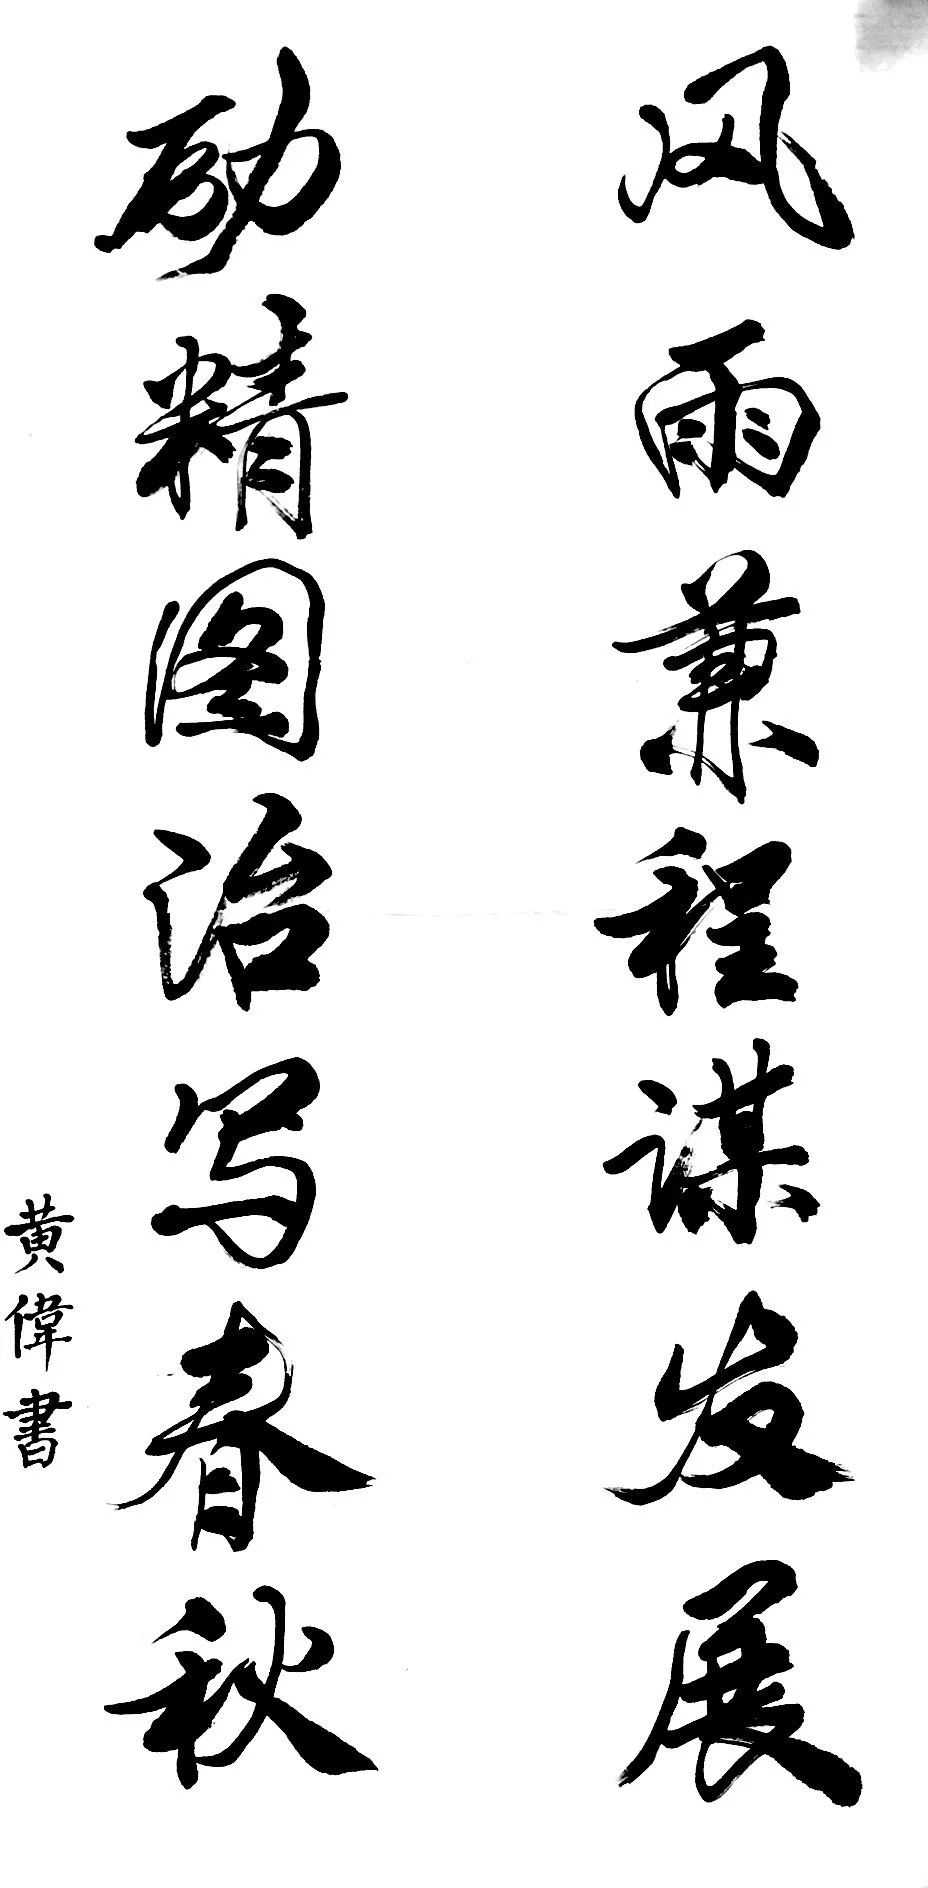 风雨兼程谋发展
励精图治写春秋
黄偉書